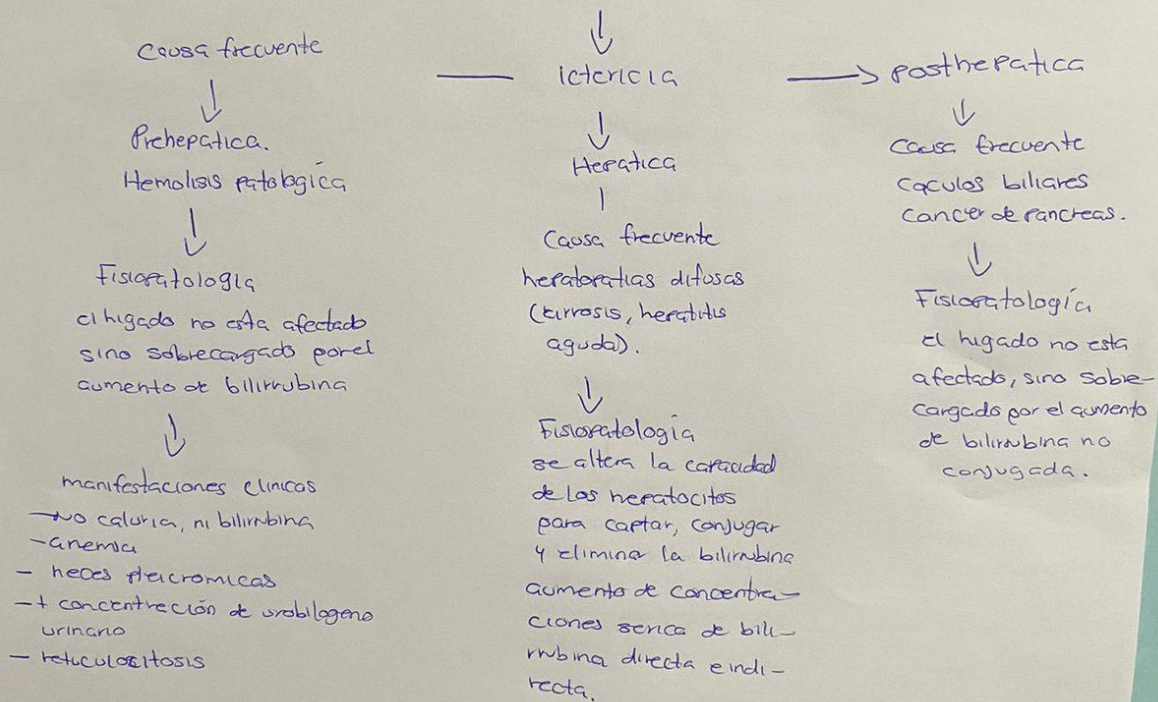 Causa frecuente
Prehepatica.
Hemolisis patologica
Fisiopatologia
el higado no esta afectado
sino sobrecargado por el
aumento de bilirrubina
manifestaciones clinicas
-No caluria, ni bilirrubina
-anemia
- heces pleicromicas
-+ concentrección de urobilogeno
urinario
- reticulositosis
ictericia
Hepatica
Causa frecuente
hepatopatias difusas
(cirrosis, hepatitis
aguda).
Fisiopatologia
se altera la capacidad
de los hepatocitos
para captar, conjugar
y elimina la bilirrubina
aumento de concentra-
ciones serica de bili-
rrubina directa e indi-
recta.
posthepatica
Causa frecuente
caculos biliares
cancer de pancreas.
Fisiopatología
el higado no esta
afectado, sino sobre-
cargado por el aumento
de bilirrubina no
conjugada.